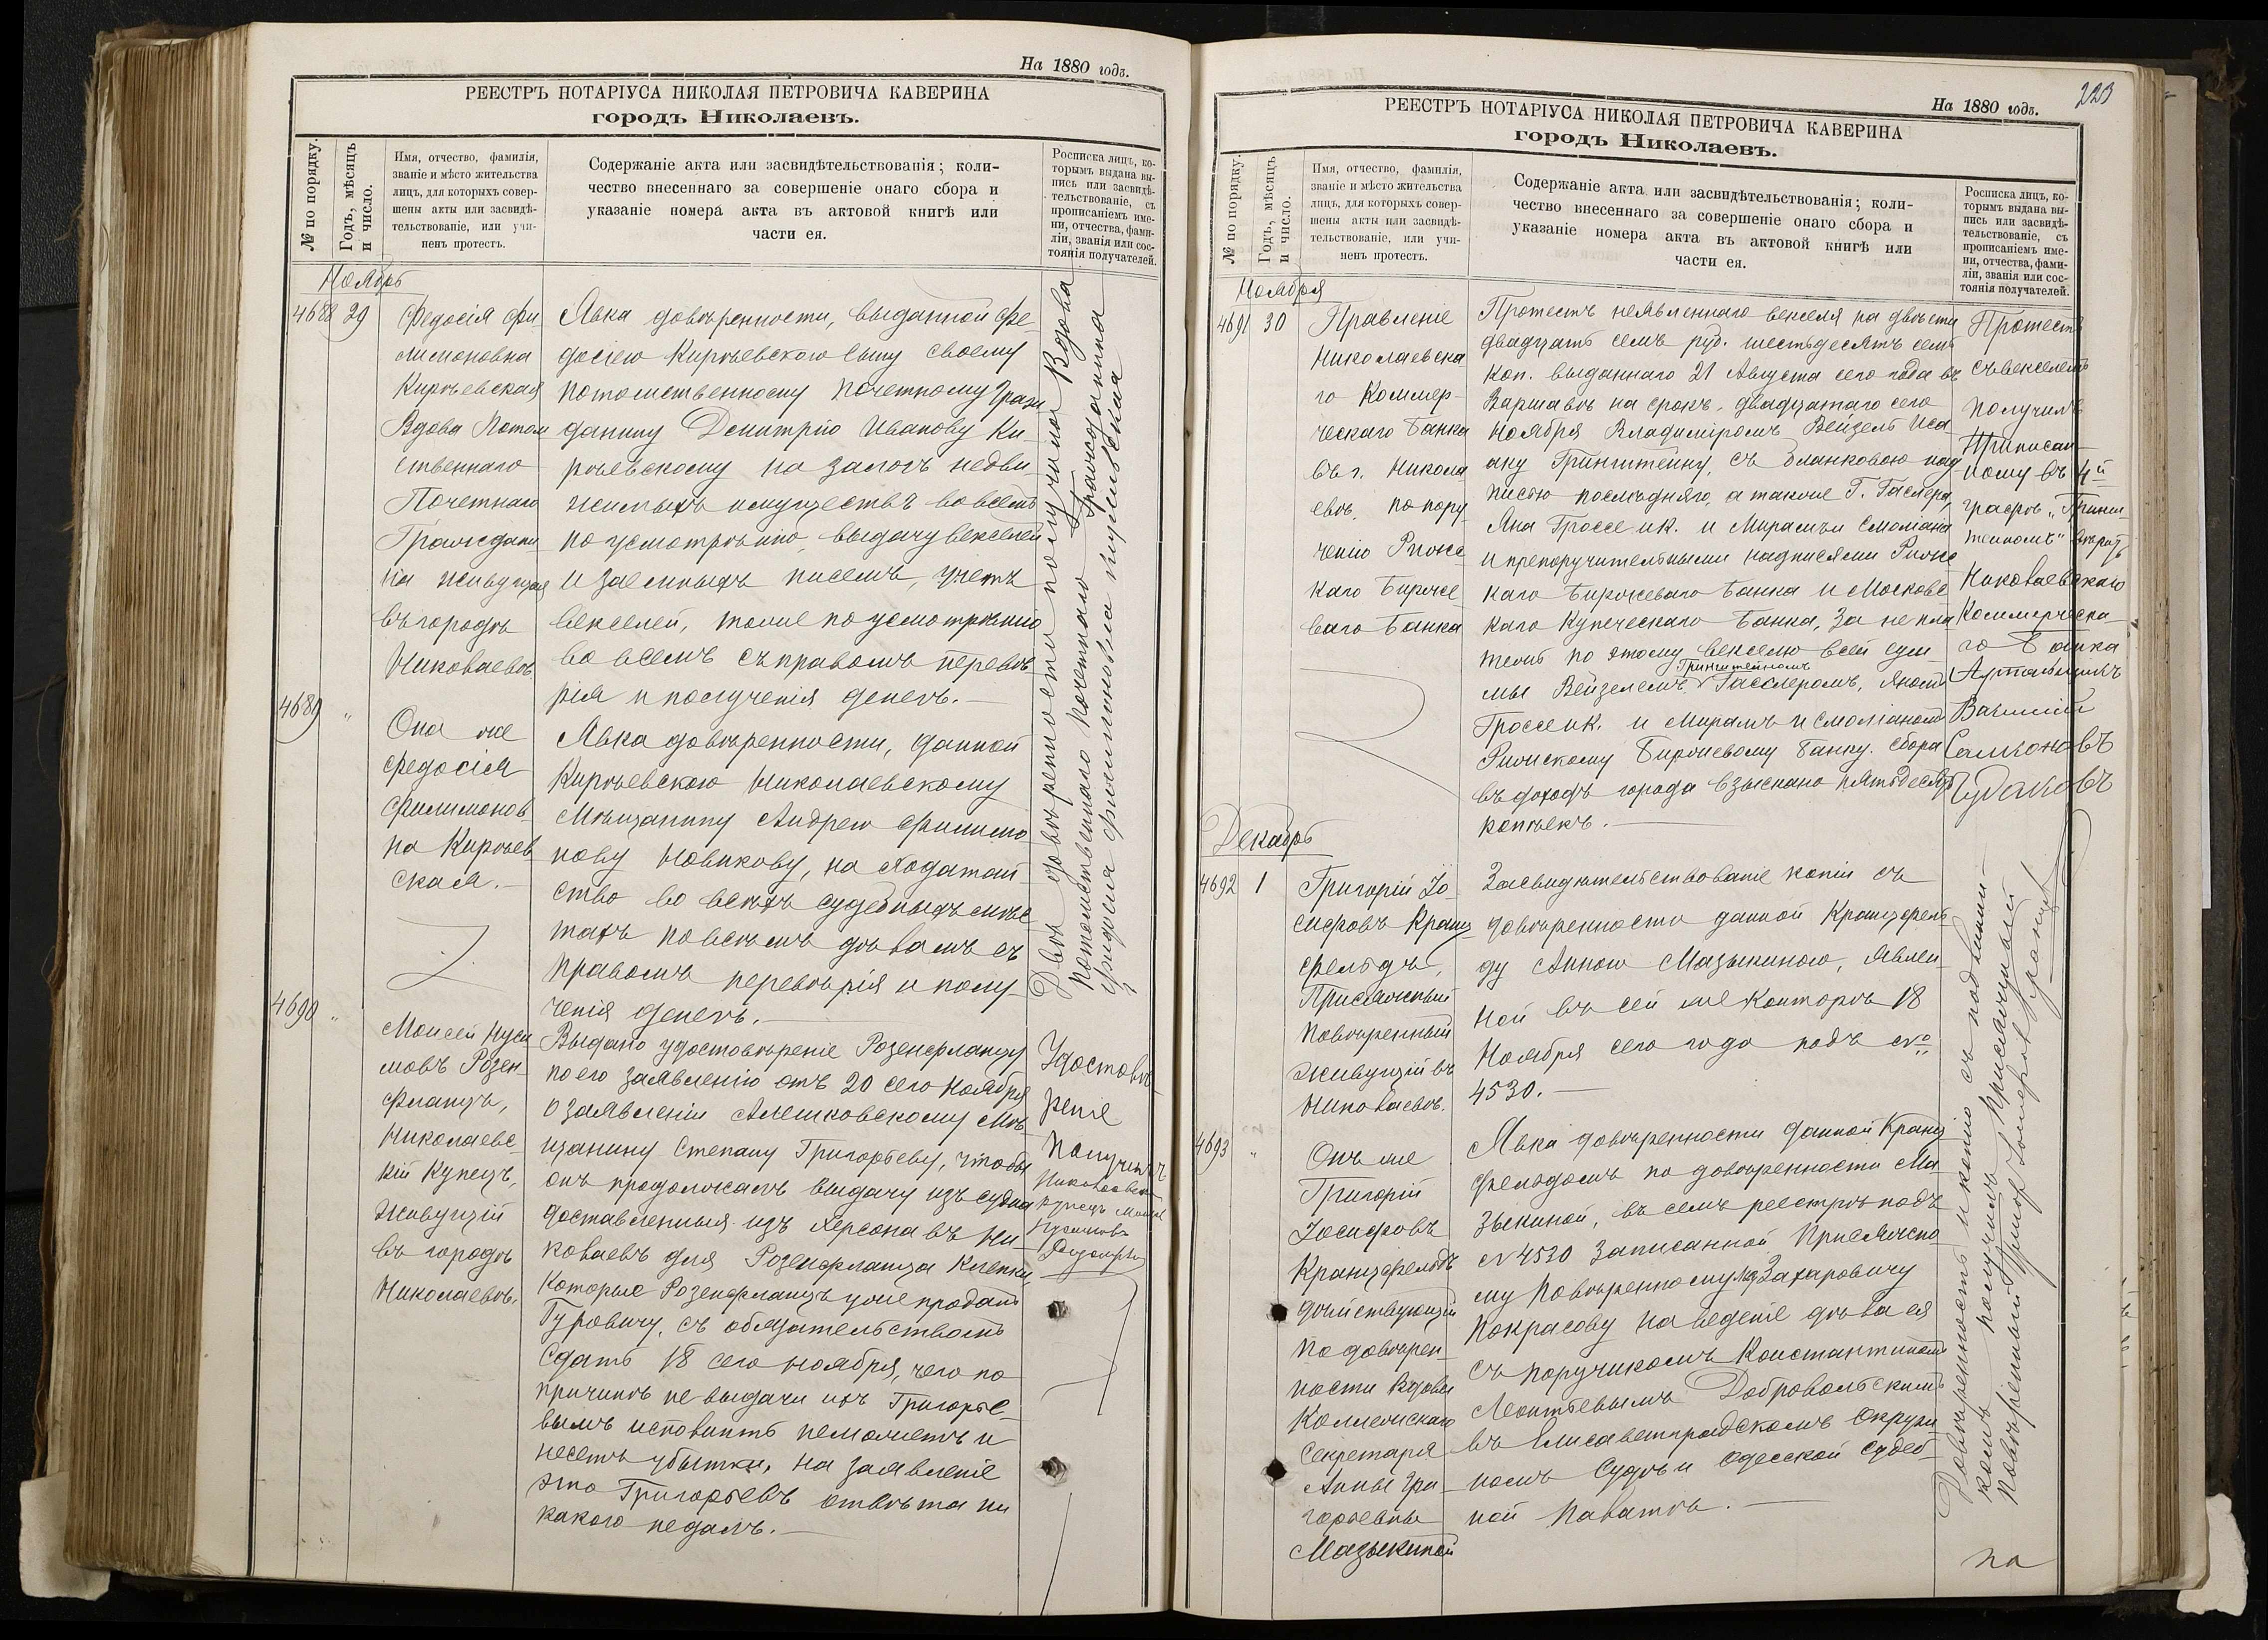 На 1880 годъ.
РЕЕСТРЪ НОТАРІУСА НИКОЛАЯ ПЕТРОВИЧА КАВЕРИНА
городъ Николаевъ.
№ по порядку.
Годъ, мѣсяцъ
и число.
Имя, отчество, фамилія,
званіе и мѣсто жительства
лицъ, для которыхъ совер-
шены акты или засвидѣ-
тельствованіе, или учи-
ненъ протестъ.
Содержаніе акта или засвидѣтельствованія; коли-
чество внесеннаго за совершеніе онаго сбора и
указаніе номера акта въ актовой книгѣ или
части ея.
Росписка лицъ, ко-
торымъ выдана вы-
пись или засвидѣ-
тельствованіе, съ
прописаніемъ име-
ни, отчества, фами-
ліи, званія или сос-
тоянія получателей.
Ноябрь
4688 29
Федосія Фи
лимоновна
Кирѣевская
Вдова Потом
ственнаго
Почетнаго
Граждани
на живущая
въ городѣ
Николаевѣ
Явка довѣренности, выданной Фе-
досіею Кирѣевскою сыну своему
потомственному почетному граж
данину Дмитрію Иванову Ки-
рѣевскому на залогъ недви
жимыхъ имуществъ во всемъ
по усмотрѣнію, выдачу векселей
и заемныхъ писемъ, учетъ
векселей, тоже по усмотрѣнію
во всемъ съ правомъ перевѣ
рія и полученія денегъ.-
4689 "
Она же
Федосія
Филимонов
на Кирѣев
ская.-
Явка довѣренности, данной
Кирѣевскою Николаевскому
Мѣщанину Андрею Филимо
нову Новикову, на ходатай
ство во всѣхъ судебныхъ мѣс
тахъ по всѣмъ дѣламъ съ
правомъ перевѣрія и полу-
ченія денегъ.-
Двѣ довѣренности получила Вдова
потомственнаго почетнаго Гражданина
4690 "
Моисей Нуси
мовъ Розен-
фланцъ,
Николаевс-
кій Купецъ,
живущій
въ городѣ
Николаевѣ.
Выдано удостовѣреніе Розенфланцу
по его заявленію отъ 20 сего Ноября
о заявленіи Алешковскому Мѣ-
щанину Степану Григорьеву, чтобы
онъ продолжалъ выдачу изъ судна
доставленныя изъ Херсона въ Ни-
колаевъ для Розенфланца клепки
которые Розенфланцъ уже продалъ
Гуровичу, съ обязательствомъ
сдать 18 сего Ноября, чего по
причинѣ не выдачи ихъ Григорье-
вымъ исполнить неможетъ и
несетъ убытки, на заявленіе
это Григорьевъ отвѣта ни
какого не далъ.-
Удостовѣ
реніе
получилъ
На 1880 годъ.
223
РЕЕСТРЪ НОТАРІУСА НИКОЛАЯ ПЕТРОВИЧА КАВЕРИНА
городъ Николаевъ.
№ по порядку.
Годъ, мѣсяцъ
и число.
Имя, отчество, фамилія,
званіе и мѣсто жительства
лицъ, для которыхъ совер-
шены акты или засвидѣ-
тельствованіе, или учи-
ненъ протестъ.
Содержаніе акта или засвидѣтельствованія; коли-
чество внесеннаго за совершеніе онаго сбора и
указаніе номера акта въ актовой книгѣ или
части ея.
Росписка лицъ, ко-
торымъ выдана вы-
пись или засвидѣ-
тельствованіе, съ
прописаніемъ име-
ни, отчества, фами-
ліи, званія или сос-
тоянія получателей.
Ноября
4691 30
Правленіе
Николаевска
го Коммер-
ческаго Банка
въ г. Никола
евѣ, по пору
ченію Рижс
каго Бирже
ваго Банка
Протестъ неявленнаго векселя на двѣсти
двадцать семь руб. шестьдесятъ семь
коп. выданнаго 21 Августа сего года въ
Варшавѣ на срокъ двадцатаго сего
Ноября Владиміромъ Вейзель Иса-
аку Гринштейну, съ бланковою над-
писью послѣдняго, а также Г. Гаслера,
Яна Гроссе и К. и Мирамъ и Смоліана
и препоручительными надписями Рижс
каго Биржеваго Банка и Московс
каго Купеческаго Банка, за не пла
тежъ по этому векселю всей сум-
мы Вейзелемъ Гринштейномъ Гасслеромъ, Яномъ
Гроссе и К. и Мирамъ и Смоліаномъ
Рижскому Биржевому Банку. Сбора
въ доходъ города взыскано пятьдесятъ
копѣекъ.-
Протестъ
съ векселемъ
получилъ
Приписан-
ному въ 4й
графѣ "Гринш-
тейномъ" вѣрить
Николаевскаго
Коммерческа-
го Банка
Артельщикъ
Василій
Декабрь
4692 1
Григорій Іо-
сифовъ Кранц
фельдъ,
Присяжный
повѣренный
живущій въ
Николаевѣ.
Засвидѣтельствованіе копіи съ
довѣренности данной Кранцфель
ду Анною Мазыкиною, явлен-
ной въ сей же Конторѣ 18
Ноября сего года подъ №
4530.-
4693 "
Онъ же
Григорій
Іосифовъ
Кранцфельдъ
дѣйствующій
по довѣрен-
ности вдовы
Коллежскаго
Секретаря
Анны Гри-
горьевны
Мазыкиной
Явка довѣренности данной Кранц
фельдомъ по довѣренности Ма-
зыкиной, въ семъ реестрѣ подъ
№ 4530 записанной Присяжно
му Повѣренному Захаровичу
Покрасову на веденіе дѣла ея
съ поручикомъ Константиномъ
Леонтьевымъ Добровольскимъ
въ Елисаветградскомъ Окруж
номъ Судѣ и Одесской Судеб-
ной Палатѣ.-
Довѣренность и копію съ подлинни-
комъ получилъ Присяжный
повѣренный
на